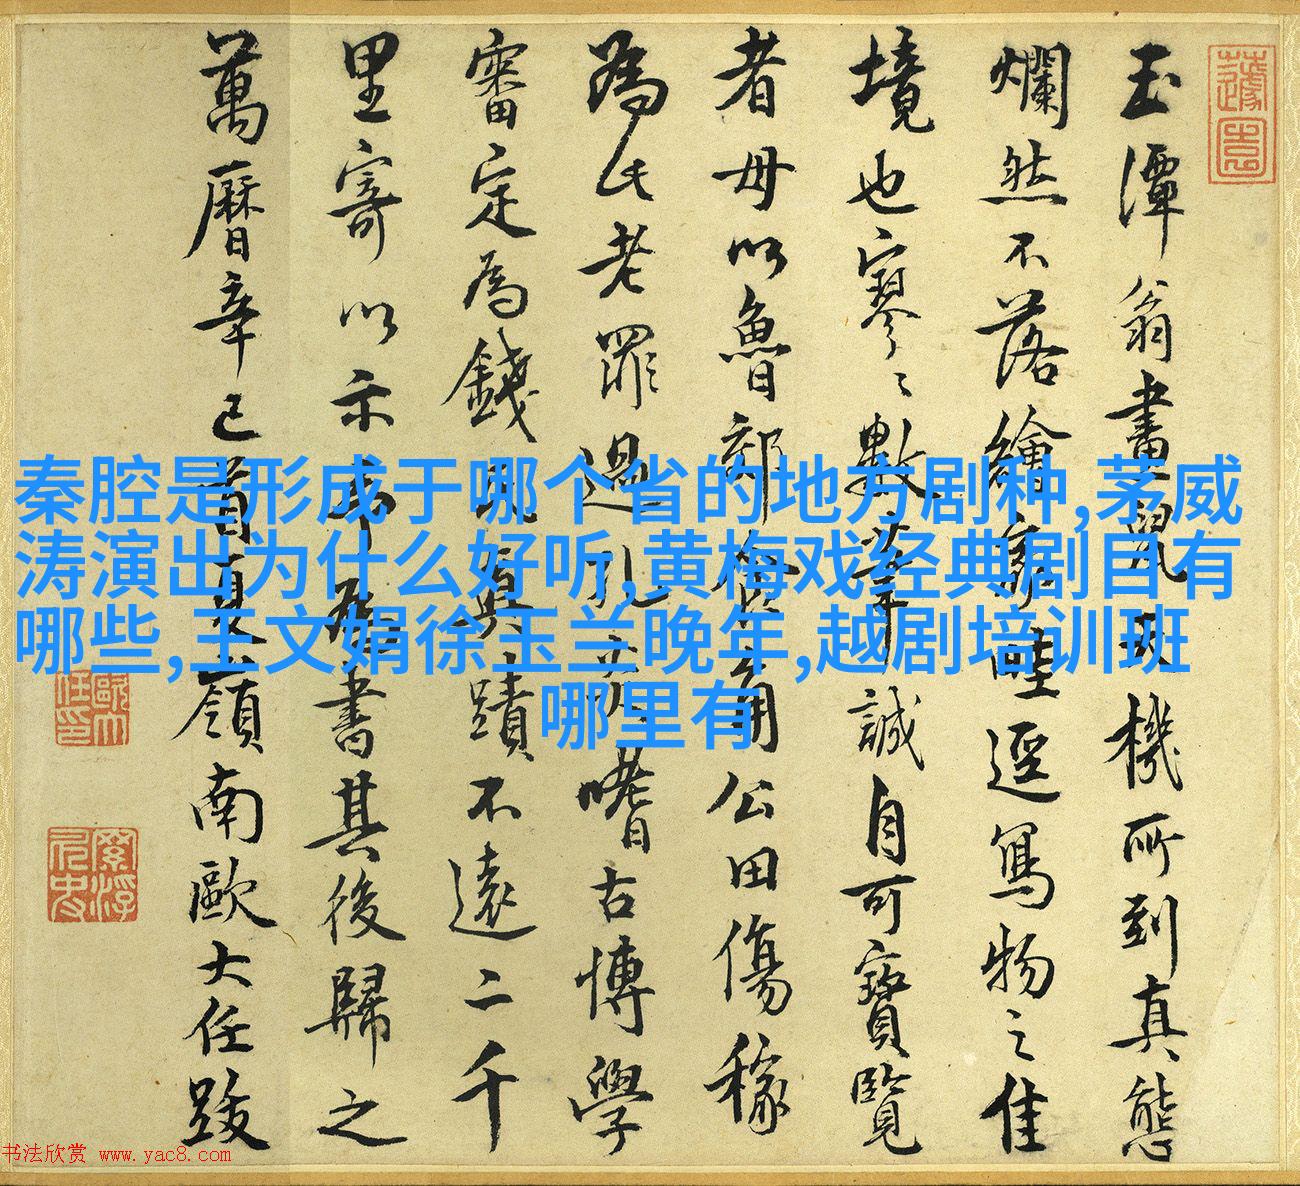 玉潭翁畫鼠機所到真態
爛然不落繪家畦逕寫物之佳
境也寥〻數筆誠自可寶覽
者毋以魯郊角公田傷稼
為此老罪過孔炎嗜古博學
審定為錢氏真蹟不遠二千
里寄以示希為書其後歸之
萬曆辛巳首夏嶺南歐大任跋
秦腔是形成于哪个省的地方剧种,茅威
涛演出为什么好听,黄梅戏经典剧目有
哪些,王文娟徐玉兰晚年,越剧培训班
哪里有
书法欣赏 www.yac8.com